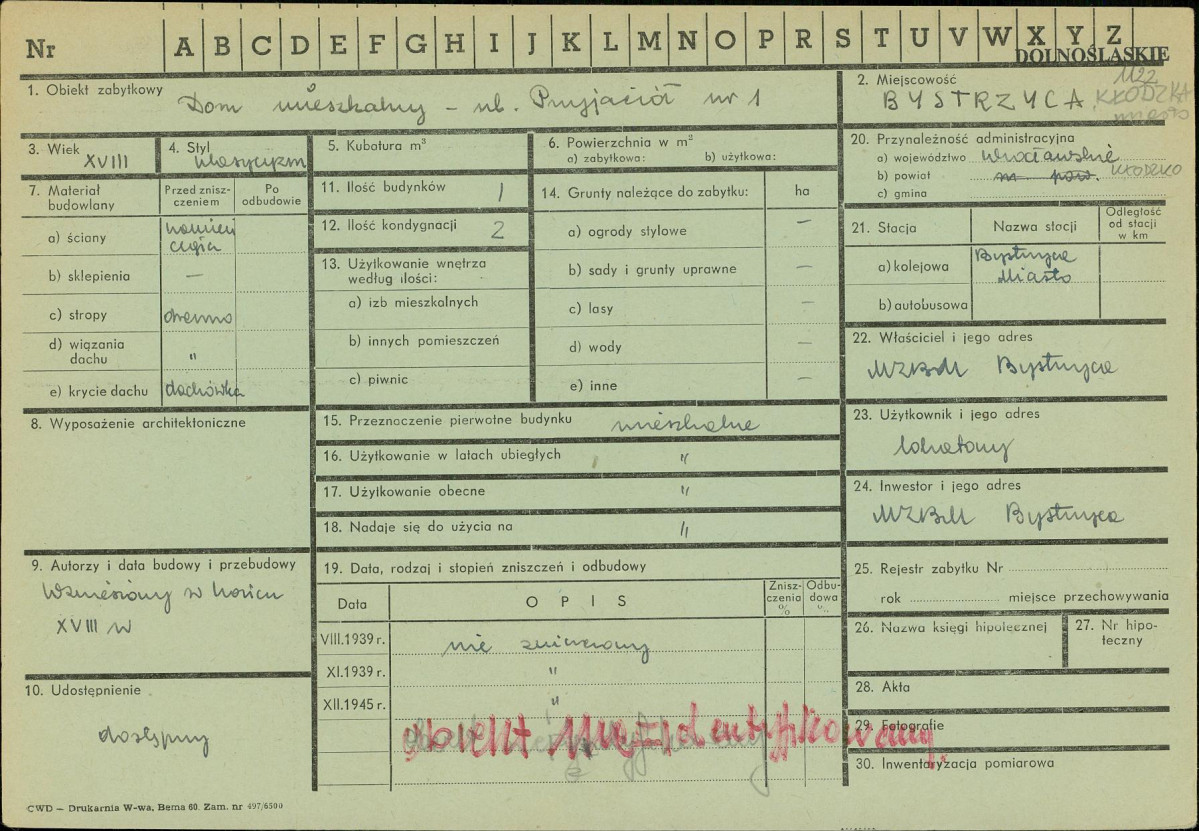 Nr A B C D E F G H I J K L M N O P R S T U V W X Y Z
DOLNOŚLĄSKIE
1. Obiekt zabytkowy Dom mieszkalny – ul. Przyjaciół nr 1
2. Miejscowość 1122
BYSTRZYCA KŁODZKA
miasto
3. Wiek XVIII
4. Styl klasycyzm
5. Kubatura m³
6. Powierzchnia w m²
a) zabytkowa: b) użytkowa:
7. Materiał budowlany
Przed zniszczeniem
Po odbudowie
a) ściany kamień
cegła
b) sklepienia —
c) stropy drewno
d) wiązania dachu "
e) krycie dachu dachówka
8. Wyposażenie architektoniczne
9. Autorzy i data budowy i przebudowy
Wzniesiony w końcu
XVIII w
10. Udostępnienie
dostępny
11. Ilość budynków 1
12. Ilość kondygnacji 2
13. Użytkowanie wnętrza
według ilości:
a) izb mieszkalnych
b) innych pomieszczeń
c) piwnic
14. Grunty należące do zabytku: ha
a) ogrody stylowe —
b) sady i grunty uprawne —
c) lasy —
d) wody —
e) inne —
15. Przeznaczenie pierwotne budynku mieszkalne
16. Użytkowanie w latach ubiegłych "
17. Użytkowanie obecne "
18. Nadaje się do użycia na "
19. Data, rodzaj i stopień zniszczeń i odbudowy
Data
OPIS
Zniszczenia %
Odbudowa %
VIII.1939 r. nie zniszczony
XI.1939 r. "
XII.1945 r. "
obiekt nie zidentyfikowany.
20. Przynależność administracyjna
a) województwo wrocławskie
b) powiat m. pow. KŁODZKO
c) gmina
21. Stacja
Nazwa stacji
Odległość od stacji w km
a) kolejowa Bystrzyca
Miasto
b) autobusowa
22. Właściciel i jego adres
MZBM Bystrzyca
23. Użytkownik i jego adres
lokatorzy
24. Inwestor i jego adres
MZBM Bystrzyca
25. Rejestr zabytku Nr
rok miejsce przechowywania
26. Nazwa księgi hipotecznej
27. Nr hipoteczny
28. Akta
29. Fotografie
30. Inwentaryzacja pomiarowa
CWD — Drukarnia W-wa, Bema 60. Zam. nr 497/6500